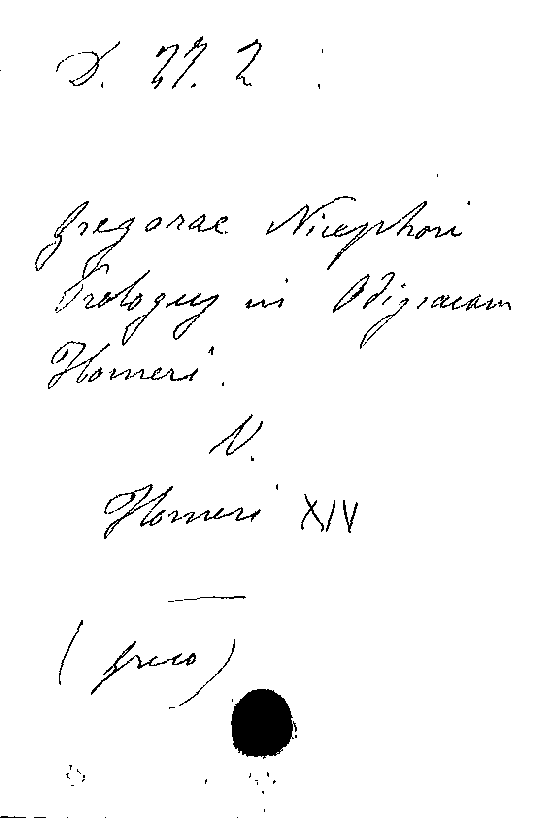 D. 27. 2
Gregorae Nicephori
Prologus in Odysseam
Homeri.
V.
Homeri XIV
(greco)